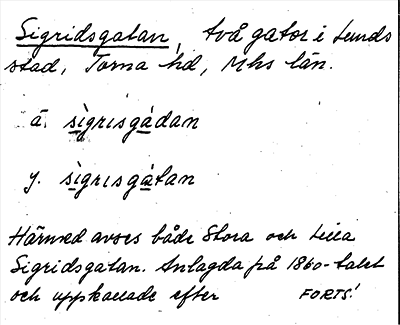 Sigridsgatan, två gator i Lunds
stad, Torna hd, Mhs län.
ä. sìgrisgàdan
y. sìgrisgàtan
Härmed avses både Stora och Lilla
Sigridsgatan. Anlagda på 1860-talet
och uppkallade efter FORTS!